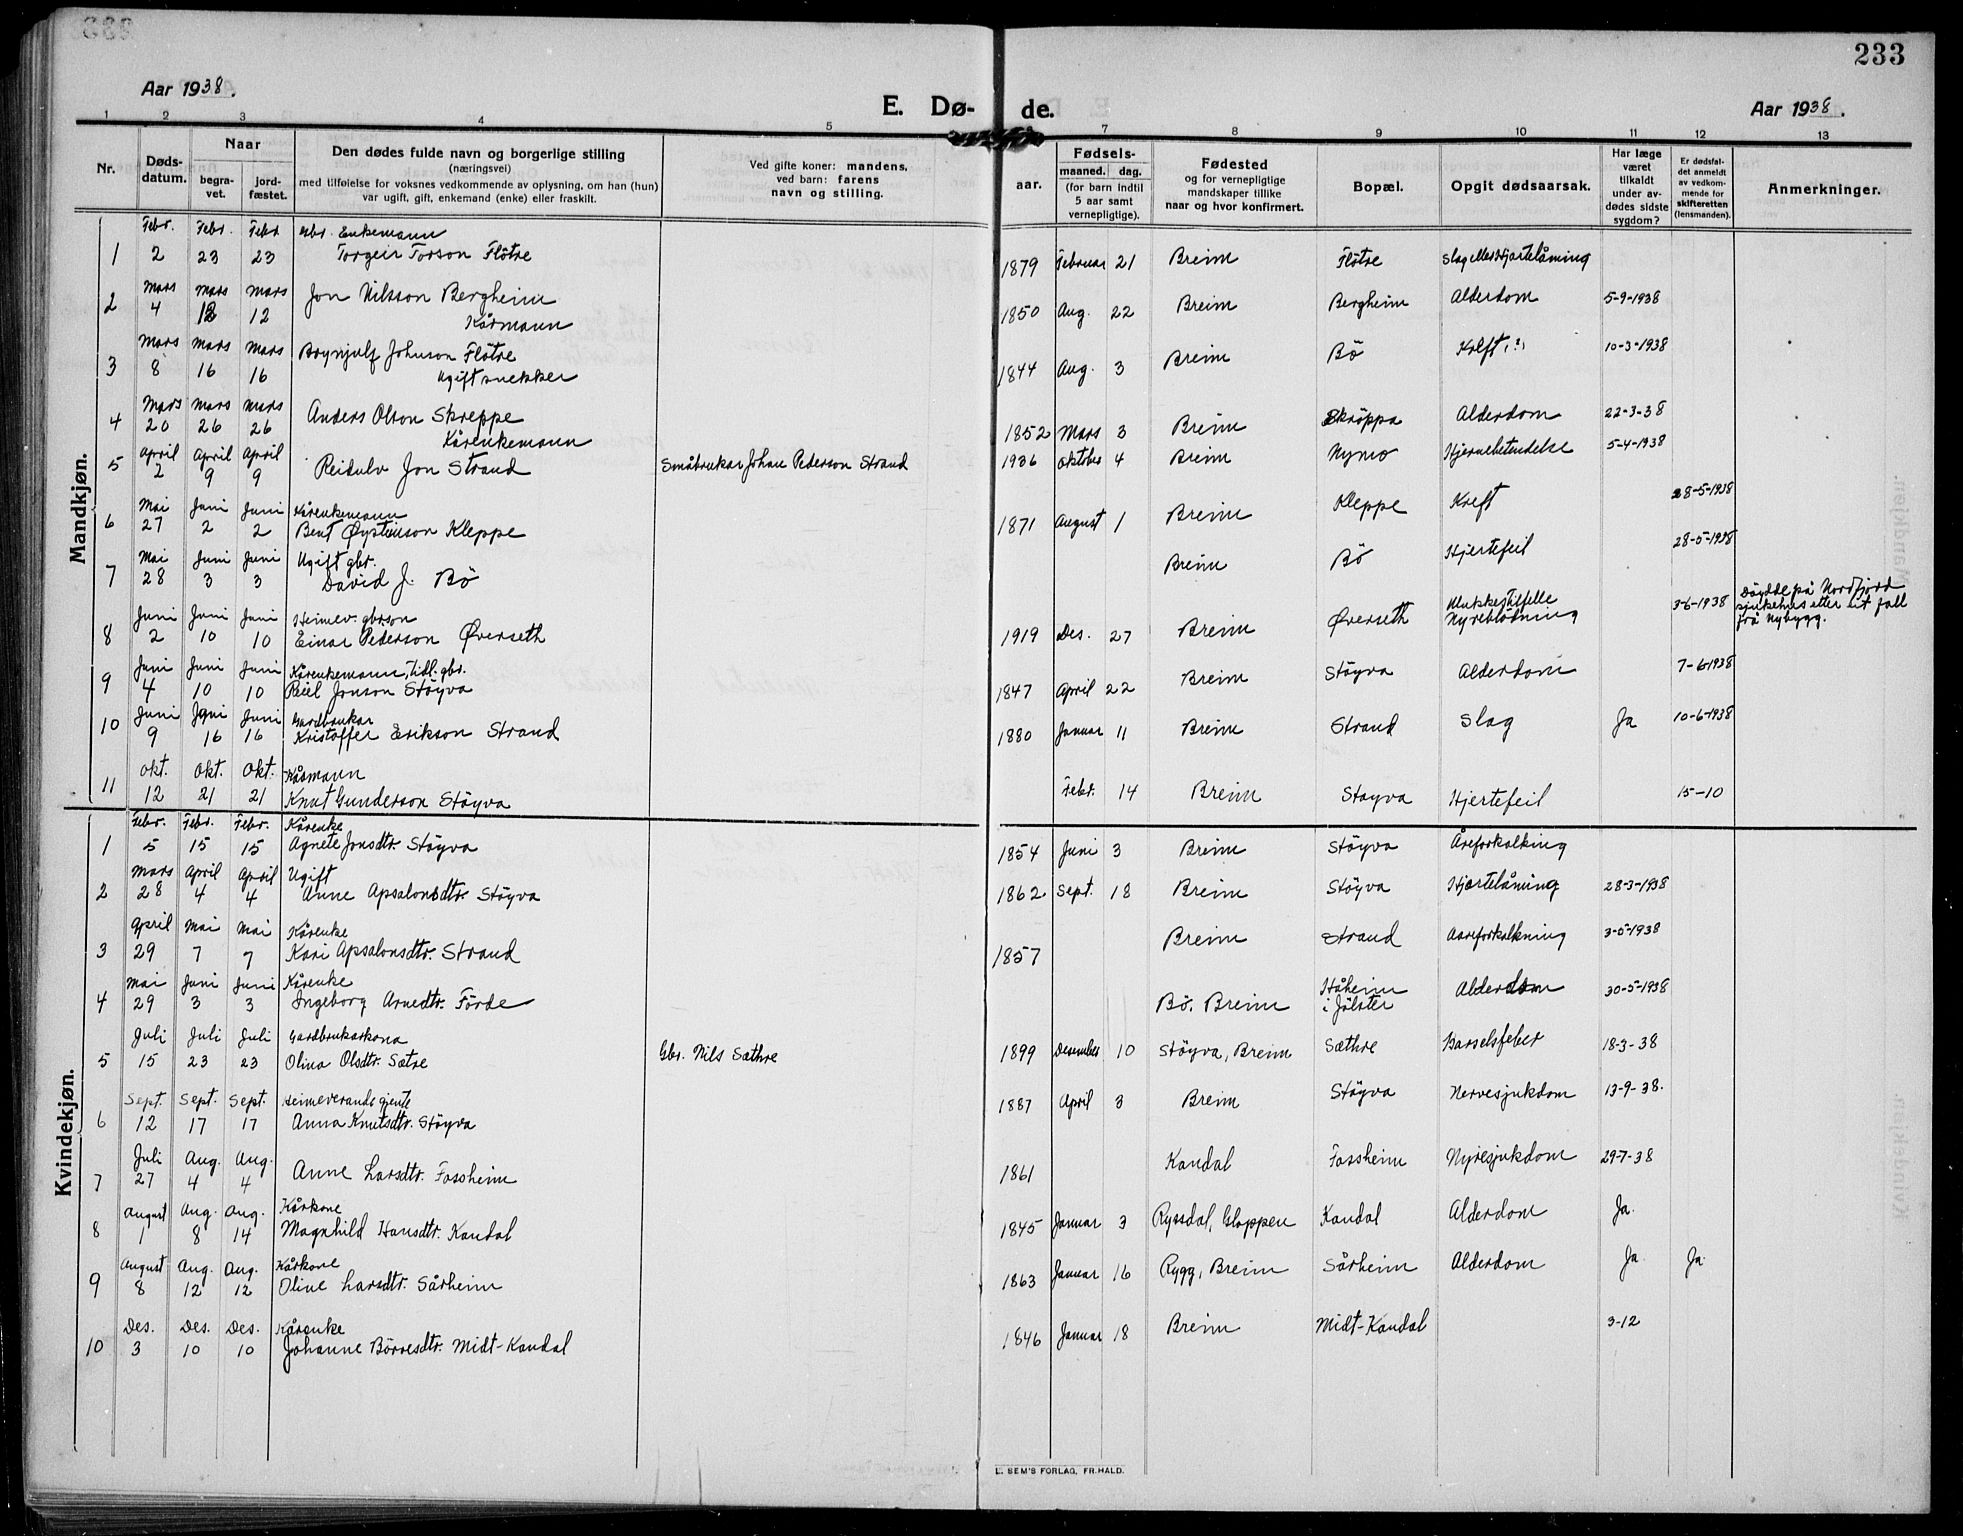 233
Aar 1938.
E. Dø- de.
Aar 1938.
1 2 3 4 5 7 8 9 10 11 12 13
Nr.
Døds-
datum.
Naar
begra-
vet.
jord-
fæstet.
Den dødes fulde navn og borgerlige stilling
(næringsvei)
med tilføielse for voksnes vedkommende av oplysning, om han (hun)
var ugift, gift, enkemand (enke) eller fraskilt.
Ved gifte koner: mandens,
ved barn: farens
navn og stilling.
aar.
Fødsels-
maaned. dag.
(for barn indtil
5 aar samt
vernepligtige).
Fødested
og for vernepligtige
mandskaper tillike
naar og hvor konfirmert.
Bopæl.
Opgit dødsaarsak.
Har læge
været
tilkaldt
under av-
dødes sidste
sygdom?
Er dødsfal-
det anmeldt
av vedkom-
mende for
skifteretten
(lensmanden).
Anmerkninger.
Mandkjøn.
Febr. Febr. Febr Gbr. Enkemann
1 2 23 23 Torgeir Torson Flötre 1879 Februar 21 Breim Flötre Slag eller Hjartelåming
Mars Mars Mars
2 4 12 12 Jon Nilsson Bergheim 1850 Aug. 22 Breim Bergheim Alderdom 5-9-1938
Kårmann
Mars Mars Mars
3 8 16 16 Brynjulf Johnson Flötre 1844 Aug. 3 Breim Bö Kreft (?) 10-3-1938
Ugift snekker
Mars Mars Mars
4 20 26 26 Anders Olson Skreppe 1852 Mars 3 Breim Skröppa Alderdom 22-3-38
Kårenkemann
April April April
5 2 9 9 Reidulv Jon Strand Småbrukar Johan Pederson Strand 1936 Oktober 4 Breim Nymo Hjernebetendelse 5-4-1938
Mai Juni Juni Kårenkemann
6 27 2 2 Bent Øysteinson Kleppe 1871 August 1 Breim Kleppe Kreft 28-5-1938
Mai Juni Juni Ugift gbr.
7 28 3 3 David J. Bö Breim Bö Hjertefeil 28-5-1938
Juni Juni Juni Heimev. gbrson
8 2 10 10 Einar Pederson Øverseth 1919 Des. 27 Breim Øverseth Ulukkestilfelle
Nyreblödning 3-6-1938 Döydde på Nordfjord
sjukehus etter eit fall
frå nybygg.
Juni Juni Juni Kårenkemann, tidl. gbr.
9 4 10 10 Jonson Støyva 1847 April 22 Breim Støyva Alderdom 7-6-1938
Juni Juni Juni Gardbrukar
10 9 16 16 Kristoffer Erikson Strand 1880 Januar 11 Breim Strand Slag Ja 10-6-1938
Okt. Okt. Okt. Kårmann
11 12 21 21 Knut Gunderson Støyva Febr. 14 Breim Støyva Hjertefeil 15-10
Kvindekjøn.
Febr. Febr. Febr. Kårenke
1 5 15 15 Agnete Jonsdtr. Støyva 1854 Juni 3 Breim Støyva Åreforkalking
Mars April April Ugift
2 28 4 4 Anne Apsalonsdtr. Støyva 1862 Sept. 18 Breim Støyva Hjartelåming 28-3-1938
April Mai Mai Kårenke
3 29 7 7 Kari Apsalonsdtr. Strand 1857 Breim Strand Aareforkalkning 3-5-1938
Mai Juni Juni Kårenke
4 29 3 3 Ingeborg Arnedtr. Förde Bö, Breim Håheim
i Jölster Alderdom 30-5-1938
Juli Juli Juli Gardbrukarkona
5 15 23 23 Olina Olsdtr. Sætre Gbr. Nils Sæthre 1899 Desember 10 Støyva, Breim Sæthre Barselsfeber 18-3-38
Sept. Sept. Sept. Heimeverande gjente
6 12 17 17 Anna Knutsdtr. Støyva 1887 April 3 Breim Støyva Nervesjukdom 13-9-38.
Juli Aug. Aug.
7 27 4 4 Anne Larsdtr. Fossheim 1861 Kandal Fossheim Nyresjukdom 29-7-38
August Aug. Aug. Kårkone
8 1 8 14 Magnhild Hansdtr. Kandal 1845 Januar 3 Ryssdal, Gloppen Kandal Alderdom Ja.
August Aug. Aug. Kårkone
9 8 12 12 Oline Larsdtr. Sårheim 1863 Januar 16 Rygg, Breim Sårheim Alderdom Ja Ja
Des. Des. Des. Kårenke
10 3 10 10 Johanne Börresdtr. Midt-Kandal 1846 Januar 18 Breim Midt-Kandal 3-12
E. SEM'S FORLAG, FR.HALD.